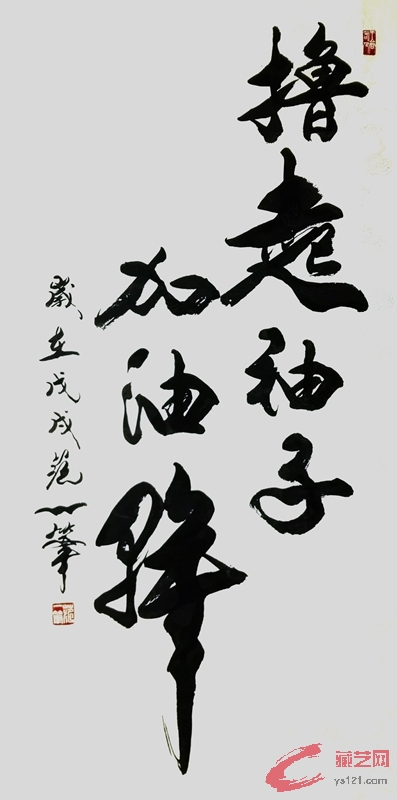 撸起袖子
加油幹
歲在戊戌
藏艺网
ys121.com